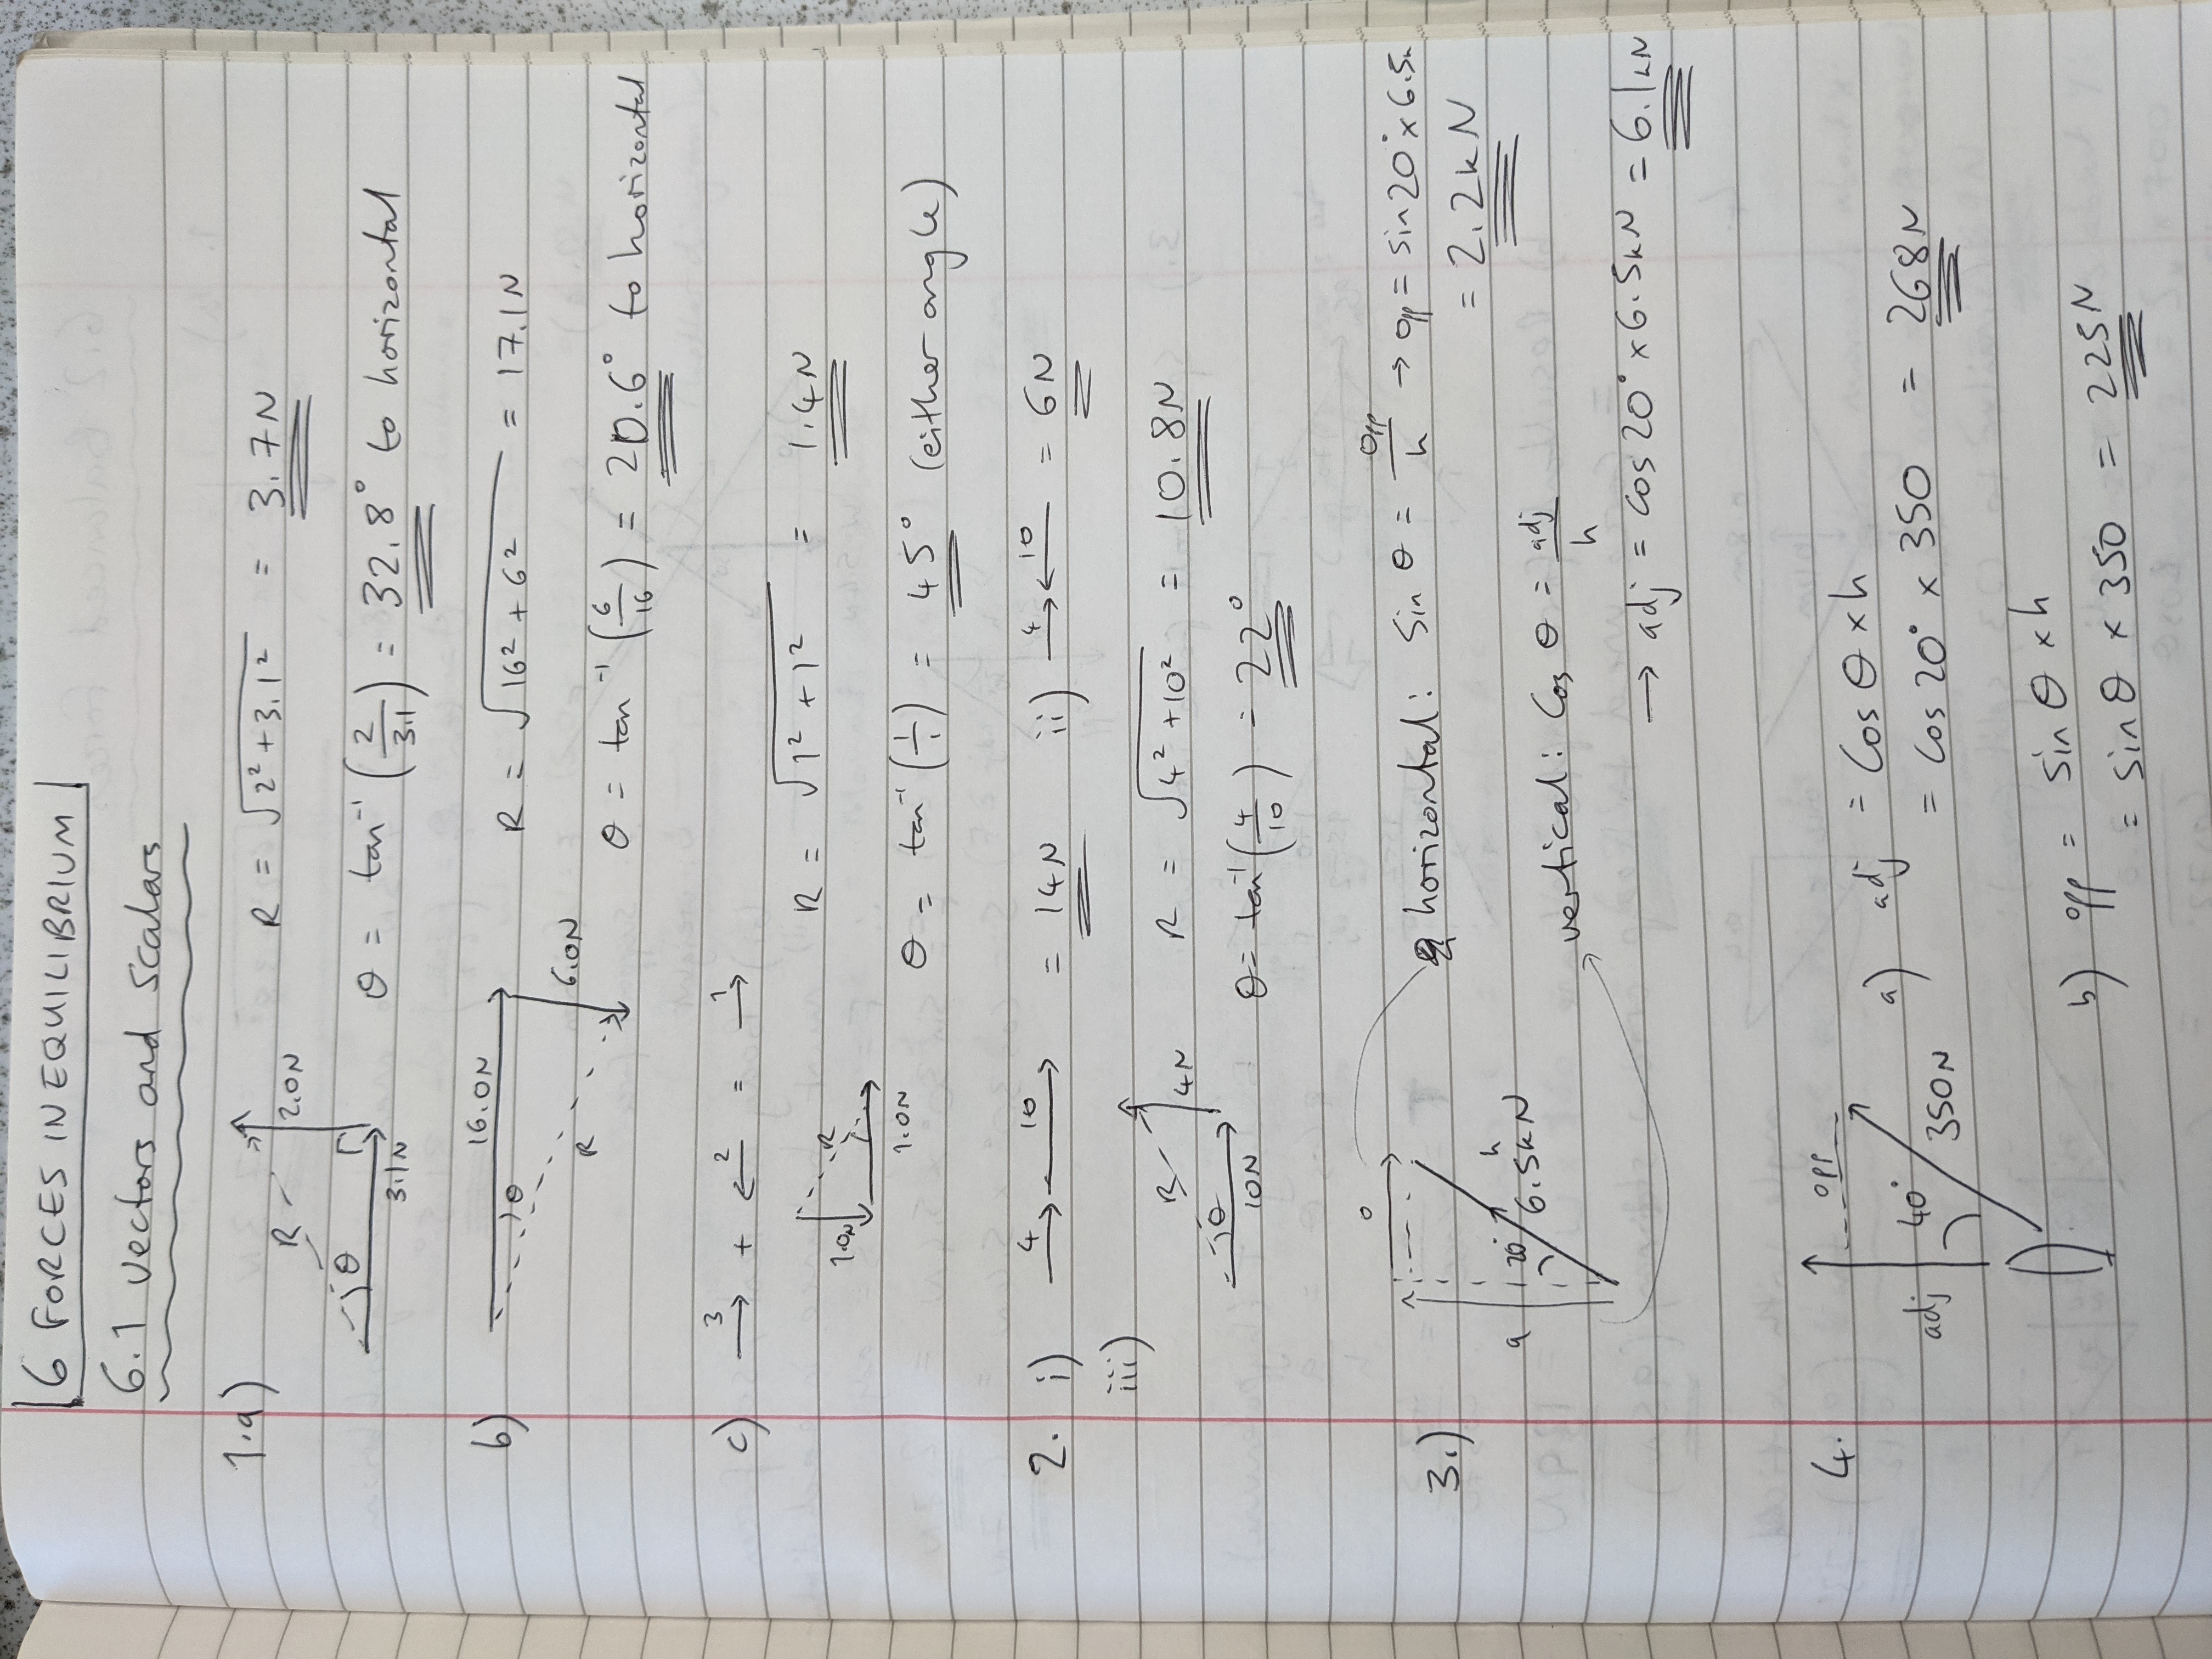 6 FORCES IN EQUILIBRIUM
6.1 Vectors and Scalars
1.a) R θ 3.1N 2.0N R = √(2² + 3.1²) = 3.7N
θ = tan⁻¹ (2/3.1) = 32.8° to horizontal
b) 16.0N θ R 6.0N R = √(16² + 6²) = 17.1N
θ = tan⁻¹ (6/16) = 20.6° to horizontal
c) 3→ + ←2 = 1→
1.0N R 1.0N R = √(1² + 1²) = 1.4N
θ = tan⁻¹ (1/1) = 45° (either angle)
2. i) 4→ 10→ = 14N ii) 4→ ←10 = 6N
iii) R θ 10N 4N R = √(4² + 10²) = 10.8N
θ = tan⁻¹ (4/10) = 22°
3.) o a 20° h 6.5kN horizontal: Sin θ = opp/h → opp = sin20° × 6.5k
= 2.2kN
vertical: Cos θ = adj/h
→ adj = cos20° × 6.5kN = 6.1kN
4. adj opp 40° 350N a) adj = Cos θ × h
= Cos 20° × 350 = 268N
b) opp = Sin θ × h
= Sin θ × 350 = 225N